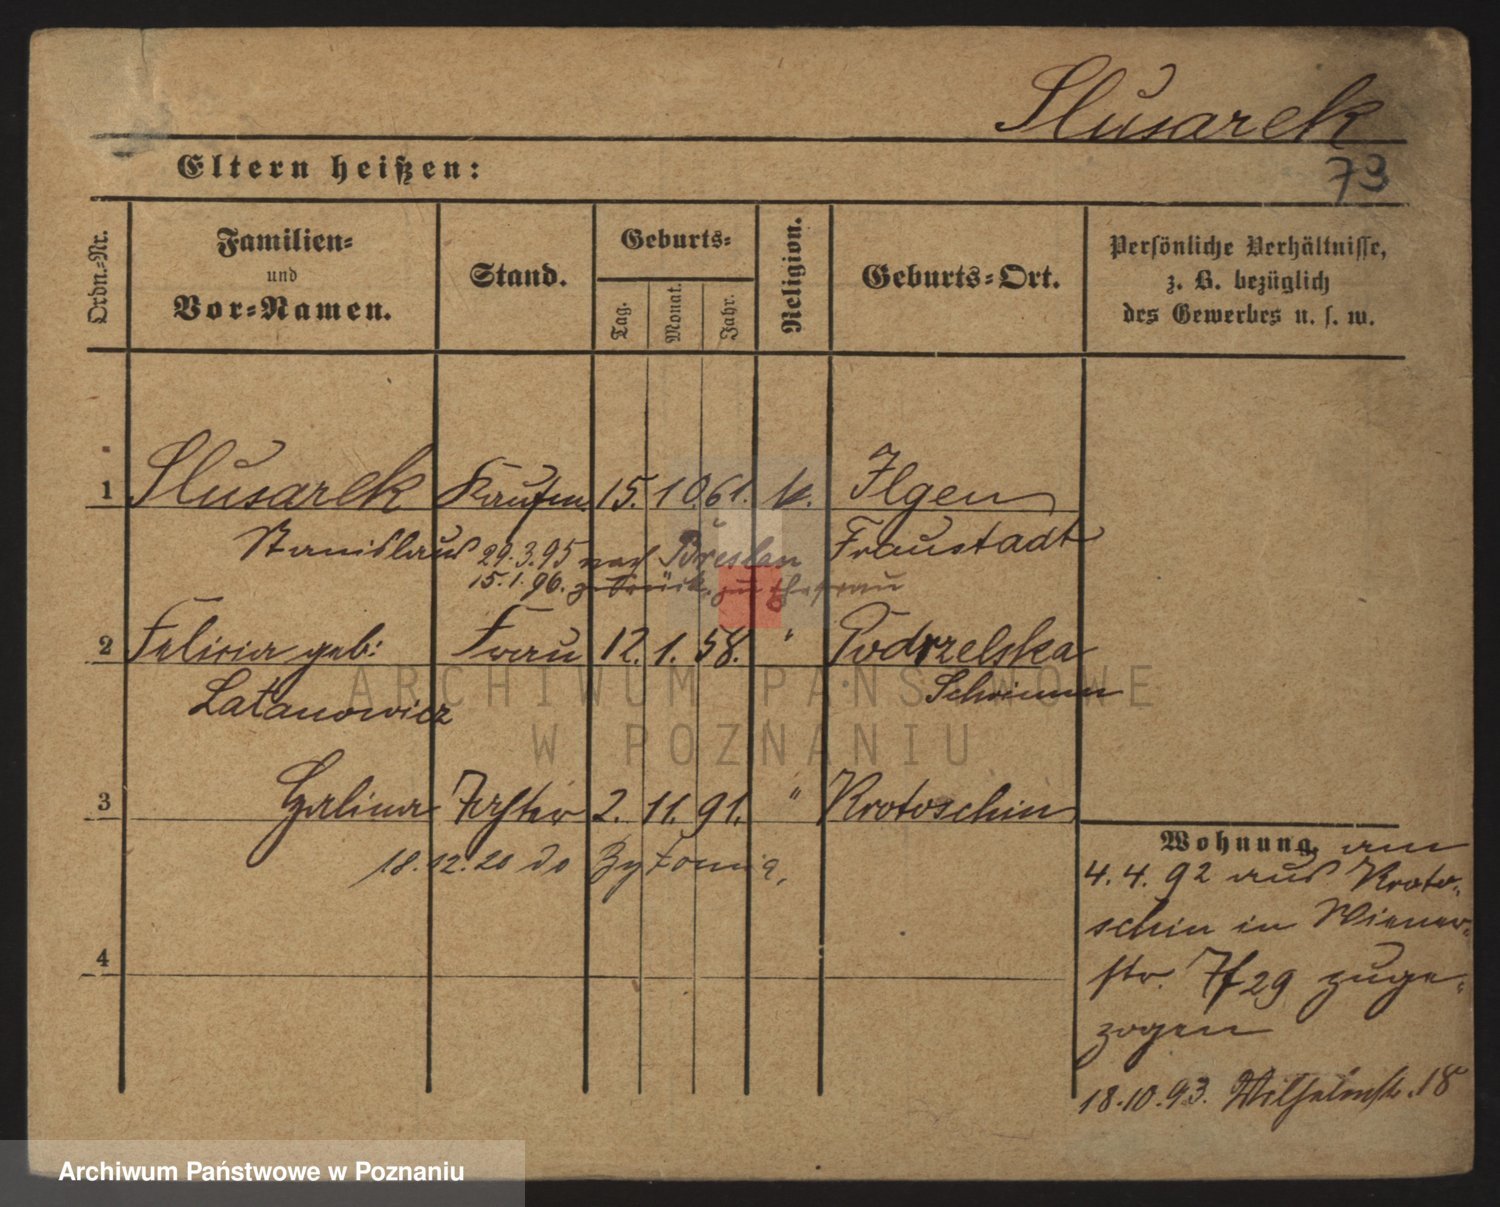 Slusarek
73
Eltern heißen:
Ordn.-Nr.
Familien-
und
Vor-Namen.
Stand.
Geburts-
Tag.
Monat.
Jahr.
Religion.
Geburts-Ort.
Persönliche Verhältnisse,
z. B. bezüglich
des Gewerbes u. s. w.
1 Slusarek Kaufm. 15. 10. 61. k. Ilgen
Stanislaus Fraustadt
29.3.95 nach Breslau
15.1.96. zurück zu Ehefrau
2 Felicia geb: Frau 12. 1. 58. " Podrzelska
Latanowicz Schrimm
3 Halina Tochter 2. 11. 91. " Krotoschin
18.12.20 do Bytomia,
4
Wohnung. am
4.4.92 aus Kroto-
schin in Wiener-
str. 7/29 zuge-
zogen
18.10.93. Wilhelmstr. 18
ARCHIWUM PAŃSTWOWE
W POZNANIU
Archiwum Państwowe w Poznaniu